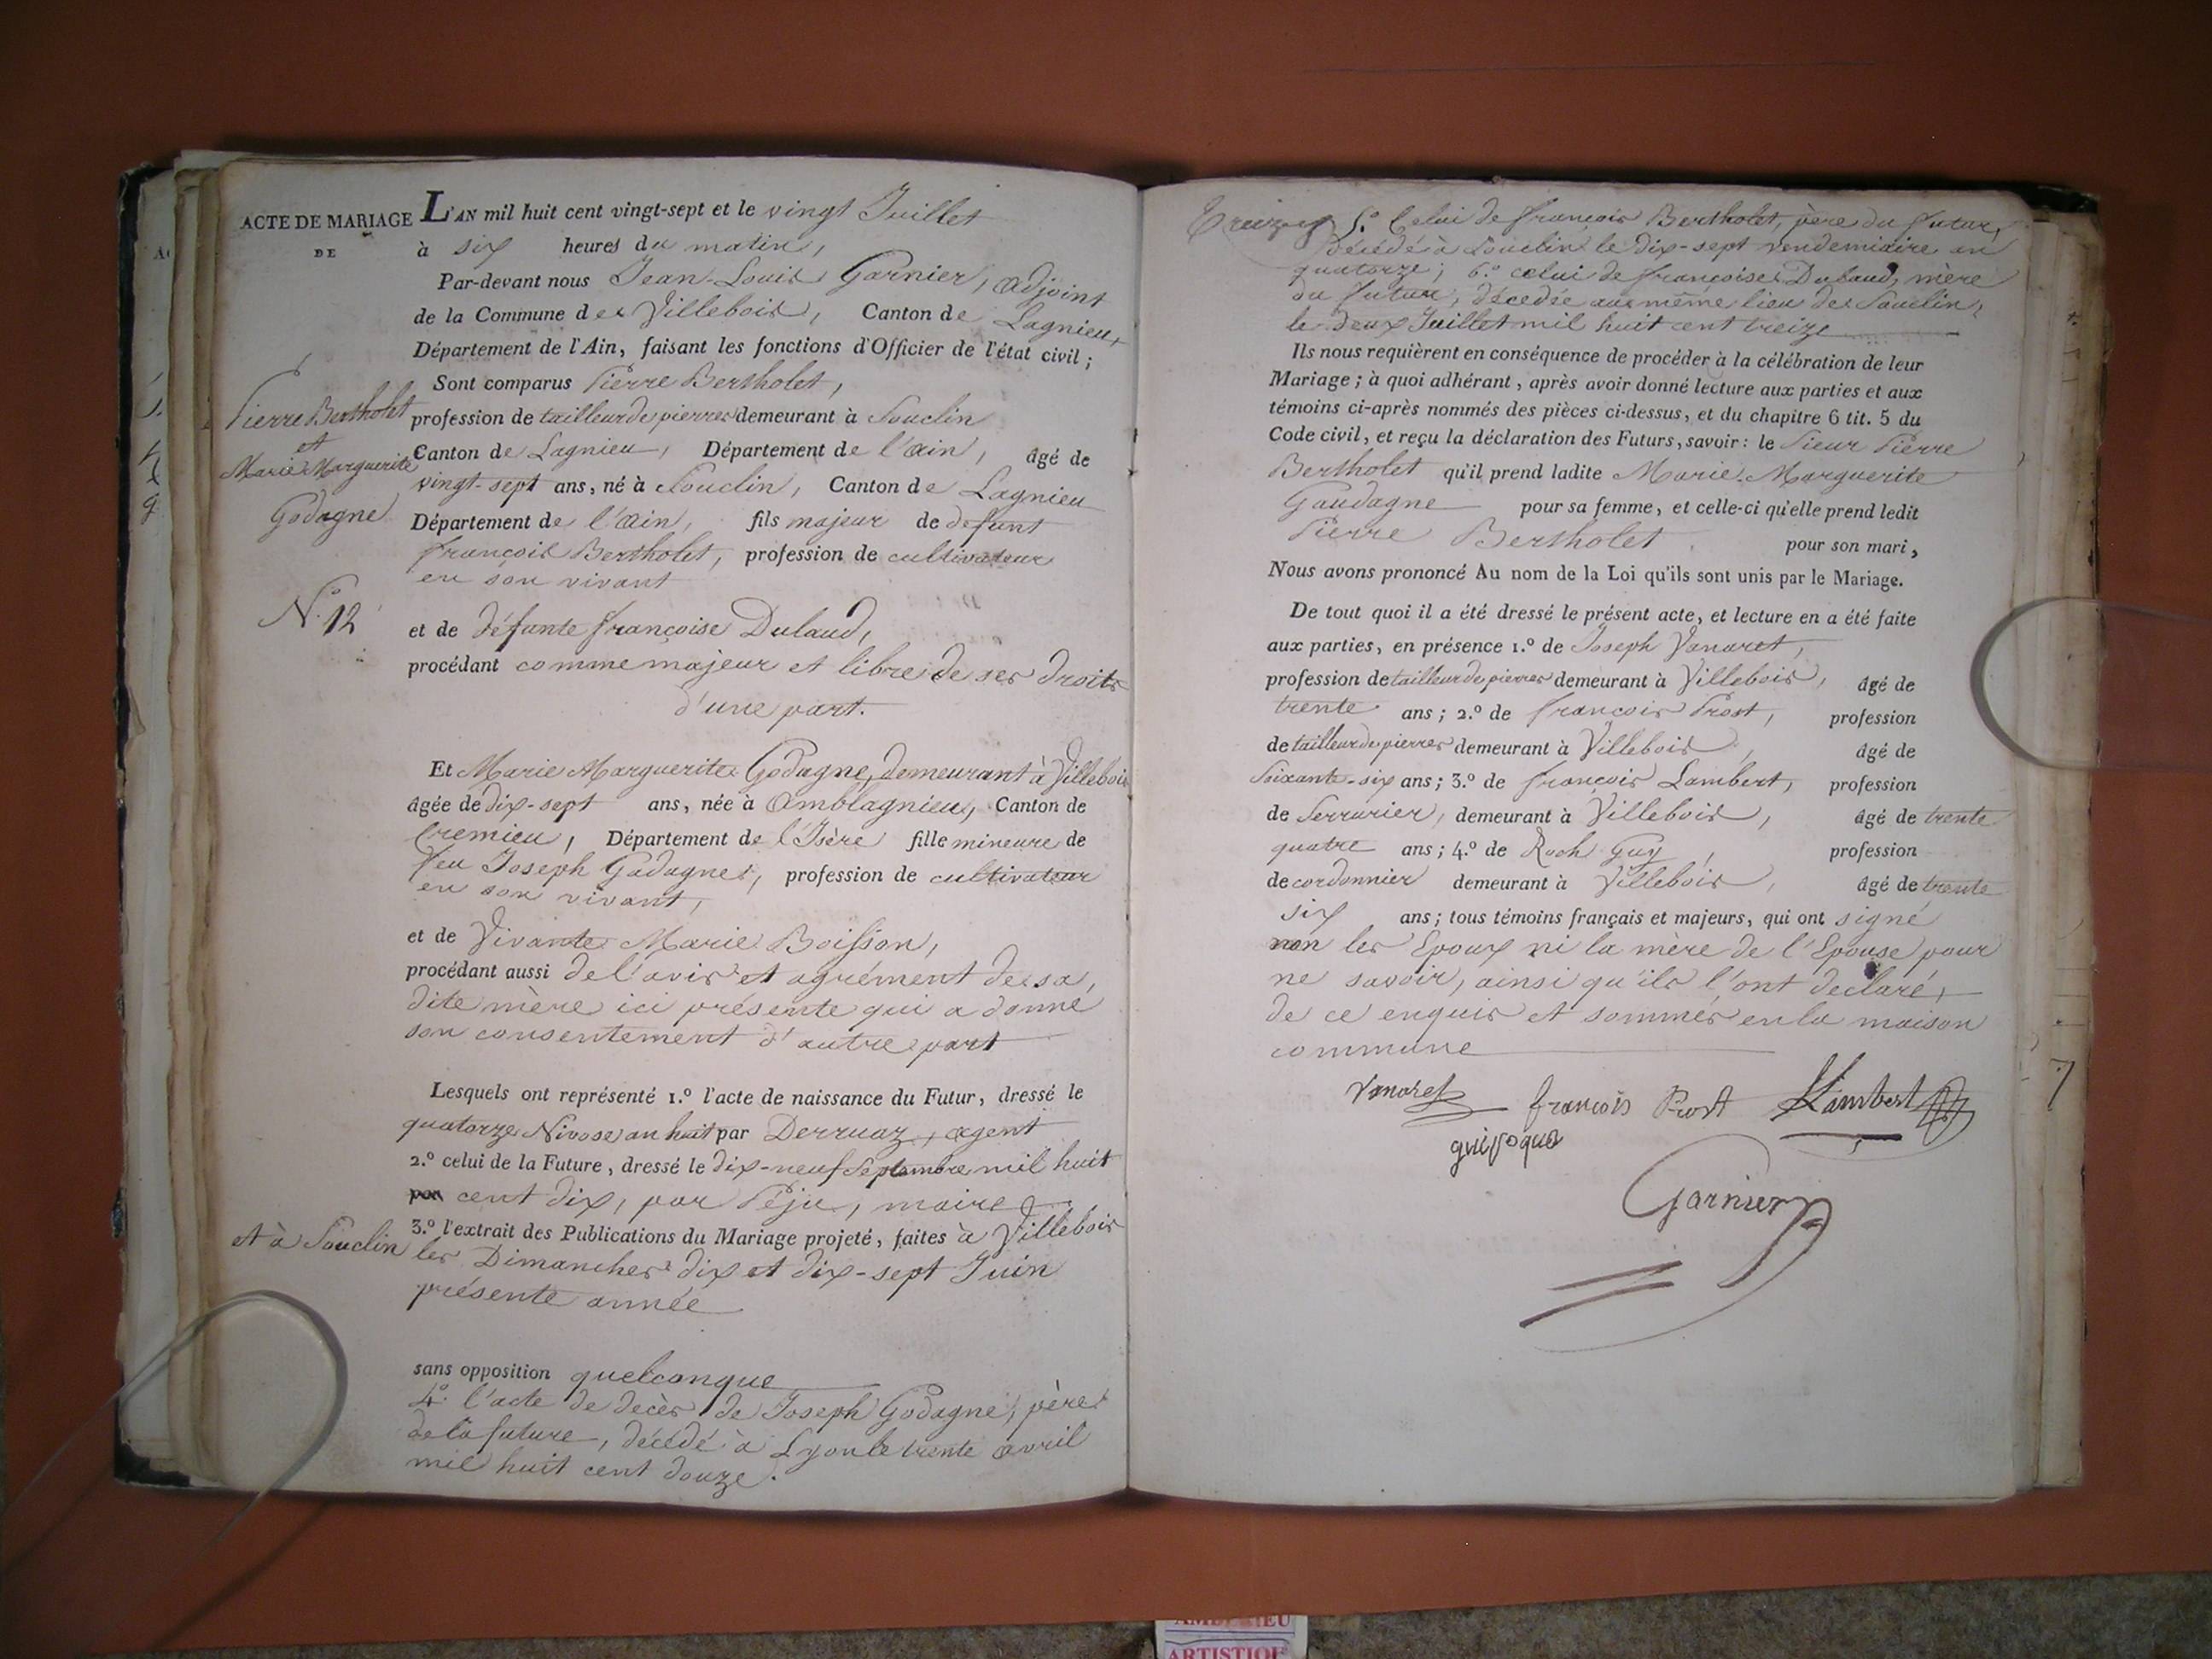 ACTE DE MARIAGE
DE
Pierre Bertholet
et
Marie Marguerite
Godagne
N.o 12
L'AN mil huit cent vingt-sept et le vingt Juillet
à six heures du matin,
Par-devant nous Jean-Louis Garnier, adjoint
de la Commune de Villebois, Canton de Lagnieu,
Département de l'Ain, faisant les fonctions d'Officier de l'état civil ;
Sont comparus Pierre Bertholet,
profession de tailleur de pierres demeurant à Souclin
Canton de Lagnieu, Département de l'ain, âgé de
vingt-sept ans, né à Souclin, Canton de Lagnieu
Département de l'ain, fils majeur de defunt
françois Bertholet, profession de cultivateur
en son vivant
et de défunte françoise Dulaud,
procédant comme majeur et libre de ses droits
d'une part.
Et Marie Marguerite Godagne, demeurant à Villebois
âgée de dix-sept ans, née à Amblagnieu, Canton de
Cremieu, Département de l'Isère fille mineure de
feu Joseph Godagne, profession de cultivateur
en son vivant,
et de Vivante Marie Boisson,
procédant aussi de l'avis et agrément de sa
dite mère ici présente qui a donné
son consentement d'autre part
Lesquels ont représenté 1.º l'acte de naissance du Futur, dressé le
quatorze Nivose an huit par Derruaz, agent
2.º celui de la Future, dressé le dix-neuf Septembre mil huit
par cent dix, par Péju, maire
3.º l'extrait des Publications du Mariage projeté, faites à Villebois
et à Souclin les Dimanches dix et dix-sept Juin
présente année
sans opposition quelconque
4.º l'acte de decès de Joseph Godagne, père
de la future, décédé à Lyon le trente avril
mil huit cent douze.
Treize
5.º Celui de françois Bertholet, père du futur,
décédé à Souclin le dix-sept vendemiaire an
quatorze ; 6.º celui de françoise Dulaud, mère
du futur, décédée au même lieu de Souclin,
le deux Juillet mil huit cent treize
Ils nous requièrent en conséquence de procéder à la célébration de leur
Mariage ; à quoi adhérant, après avoir donné lecture aux parties et aux
témoins ci-après nommés des pièces ci-dessus, et du chapitre 6 tit. 5 du
Code civil, et reçu la déclaration des Futurs, savoir : le Sieur Pierre
Bertholet qu'il prend ladite Marie Marguerite
Gaudagne pour sa femme, et celle-ci qu'elle prend ledit
Pierre Bertholet pour son mari,
Nous avons prononcé Au nom de la Loi qu'ils sont unis par le Mariage.
De tout quoi il a été dressé le présent acte, et lecture en a été faite
aux parties, en présence 1.º de Joseph Vanaret,
profession de tailleur de pierres demeurant à Villebois, âgé de
trente ans ; 2.º de françois Prost, profession
de tailleur de pierres demeurant à Villebois, âgé de
Soixante-six ans ; 3.º de françois Lambert, profession
de Serrurier, demeurant à Villebois, âgé de trente
quatre ans ; 4.º de Roch Guy, profession
de cordonnier demeurant à Villebois, âgé de trente
six ans ; tous témoins français et majeurs, qui ont signé
non les Epoux ni la mère de l'Epouse pour
ne savoir, ainsi qu'ils l'ont declaré,
de ce enquis et sommés en la maison
commune
Vanaret françois Prost Lambert
Garnier
7
ARTISTIQUE